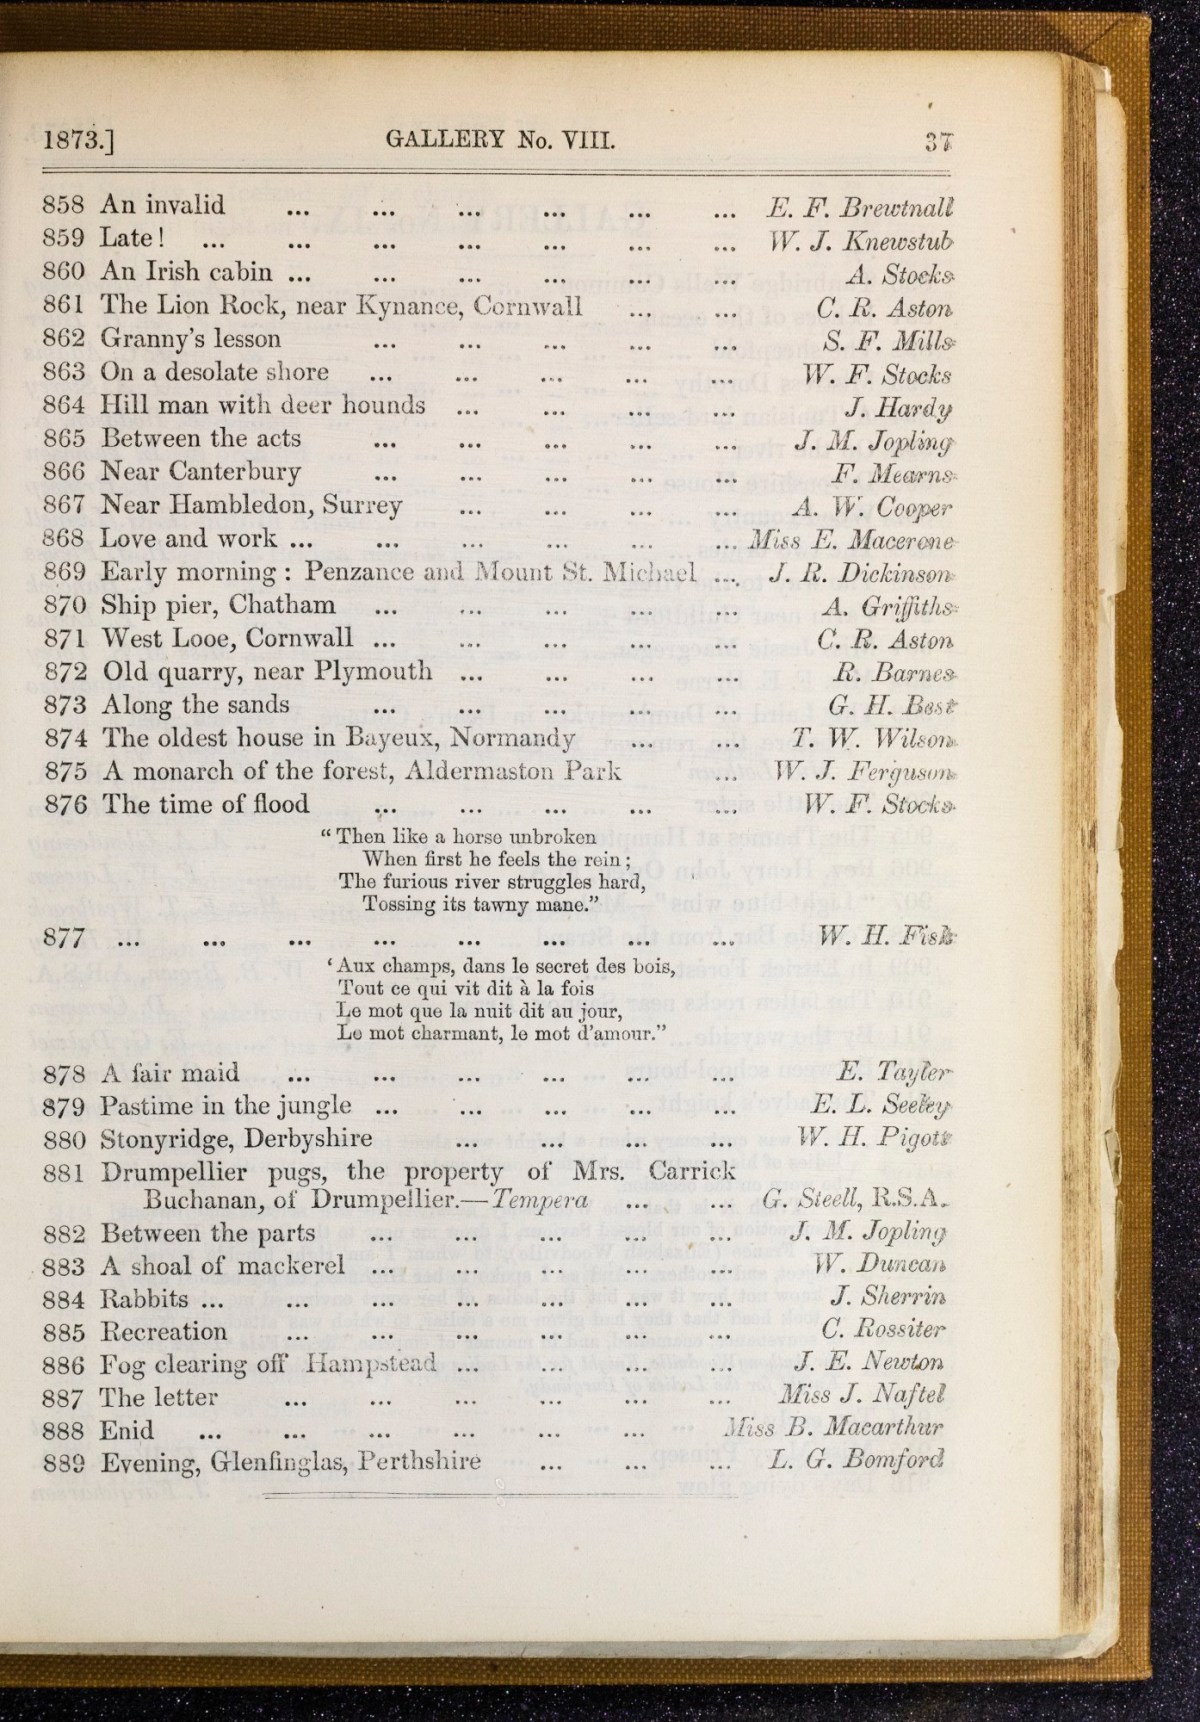 1873.] GALLERY No. VIII. 37
858 An invalid ... ... ... ... ... ... E. F. Brewtnall
859 Late! ... ... ... ... ... ... ... W. J. Knewstub
860 An Irish cabin ... ... ... ... ... ... A. Stocks
861 The Lion Rock, near Kynance, Cornwall ... ... C. R. Aston
862 Granny's lesson ... ... ... ... ... S. F. Mills
863 On a desolate shore ... ... ... ... ... W. F. Stocks
864 Hill man with deer hounds ... ... ... ... J. Hardy
865 Between the acts ... ... ... ... ... J. M. Jopling
866 Near Canterbury ... ... ... ... ... F. Mearns
867 Near Hambledon, Surrey ... ... ... ... A. W. Cooper
868 Love and work ... ... ... ... ... ... Miss E. Macerone
869 Early morning : Penzance and Mount St. Michael ... J. R. Dickinson
870 Ship pier, Chatham ... ... ... ... ... A. Griffiths
871 West Looe, Cornwall ... ... ... ... ... C. R. Aston
872 Old quarry, near Plymouth ... ... ... ... R. Barnes
873 Along the sands ... ... ... ... ... G. H. Best
874 The oldest house in Bayeux, Normandy ... ... T. W. Wilson
875 A monarch of the forest, Aldermaston Park ... W. J. Ferguson
876 The time of flood ... ... ... ... ... W. F. Stocks
"Then like a horse unbroken
When first he feels the rein;
The furious river struggles hard,
Tossing its tawny mane."
877 ... ... ... ... ... ... ... ... W. H. Fisk
'Aux champs, dans le secret des bois,
Tout ce qui vit dit à la fois
Le mot que la nuit dit au jour,
Le mot charmant, le mot d'amour."
878 A fair maid ... ... ... ... ... ... E. Tayler
879 Pastime in the jungle ... ... ... ... ... E. L. Seeley
880 Stonyridge, Derbyshire ... ... ... ... W. H. Pigott
881 Drumpellier pugs, the property of Mrs. Carrick
Buchanan, of Drumpellier.—Tempera ... ... G. Steell, R.S.A.
882 Between the parts ... ... ... ... ... J. M. Jopling
883 A shoal of mackerel ... ... ... ... ... W. Duncan
884 Rabbits ... ... ... ... ... ... ... J. Sherrin
885 Recreation ... ... ... ... ... ... C. Rossiter
886 Fog clearing off Hampstead ... ... ... ... J. E. Newton
887 The letter ... ... ... ... ... ... Miss J. Naftel
888 Enid ... ... ... ... ... ... Miss B. Macarthur
889 Evening, Glenfinglas, Perthshire ... ... ... L. G. Bomford